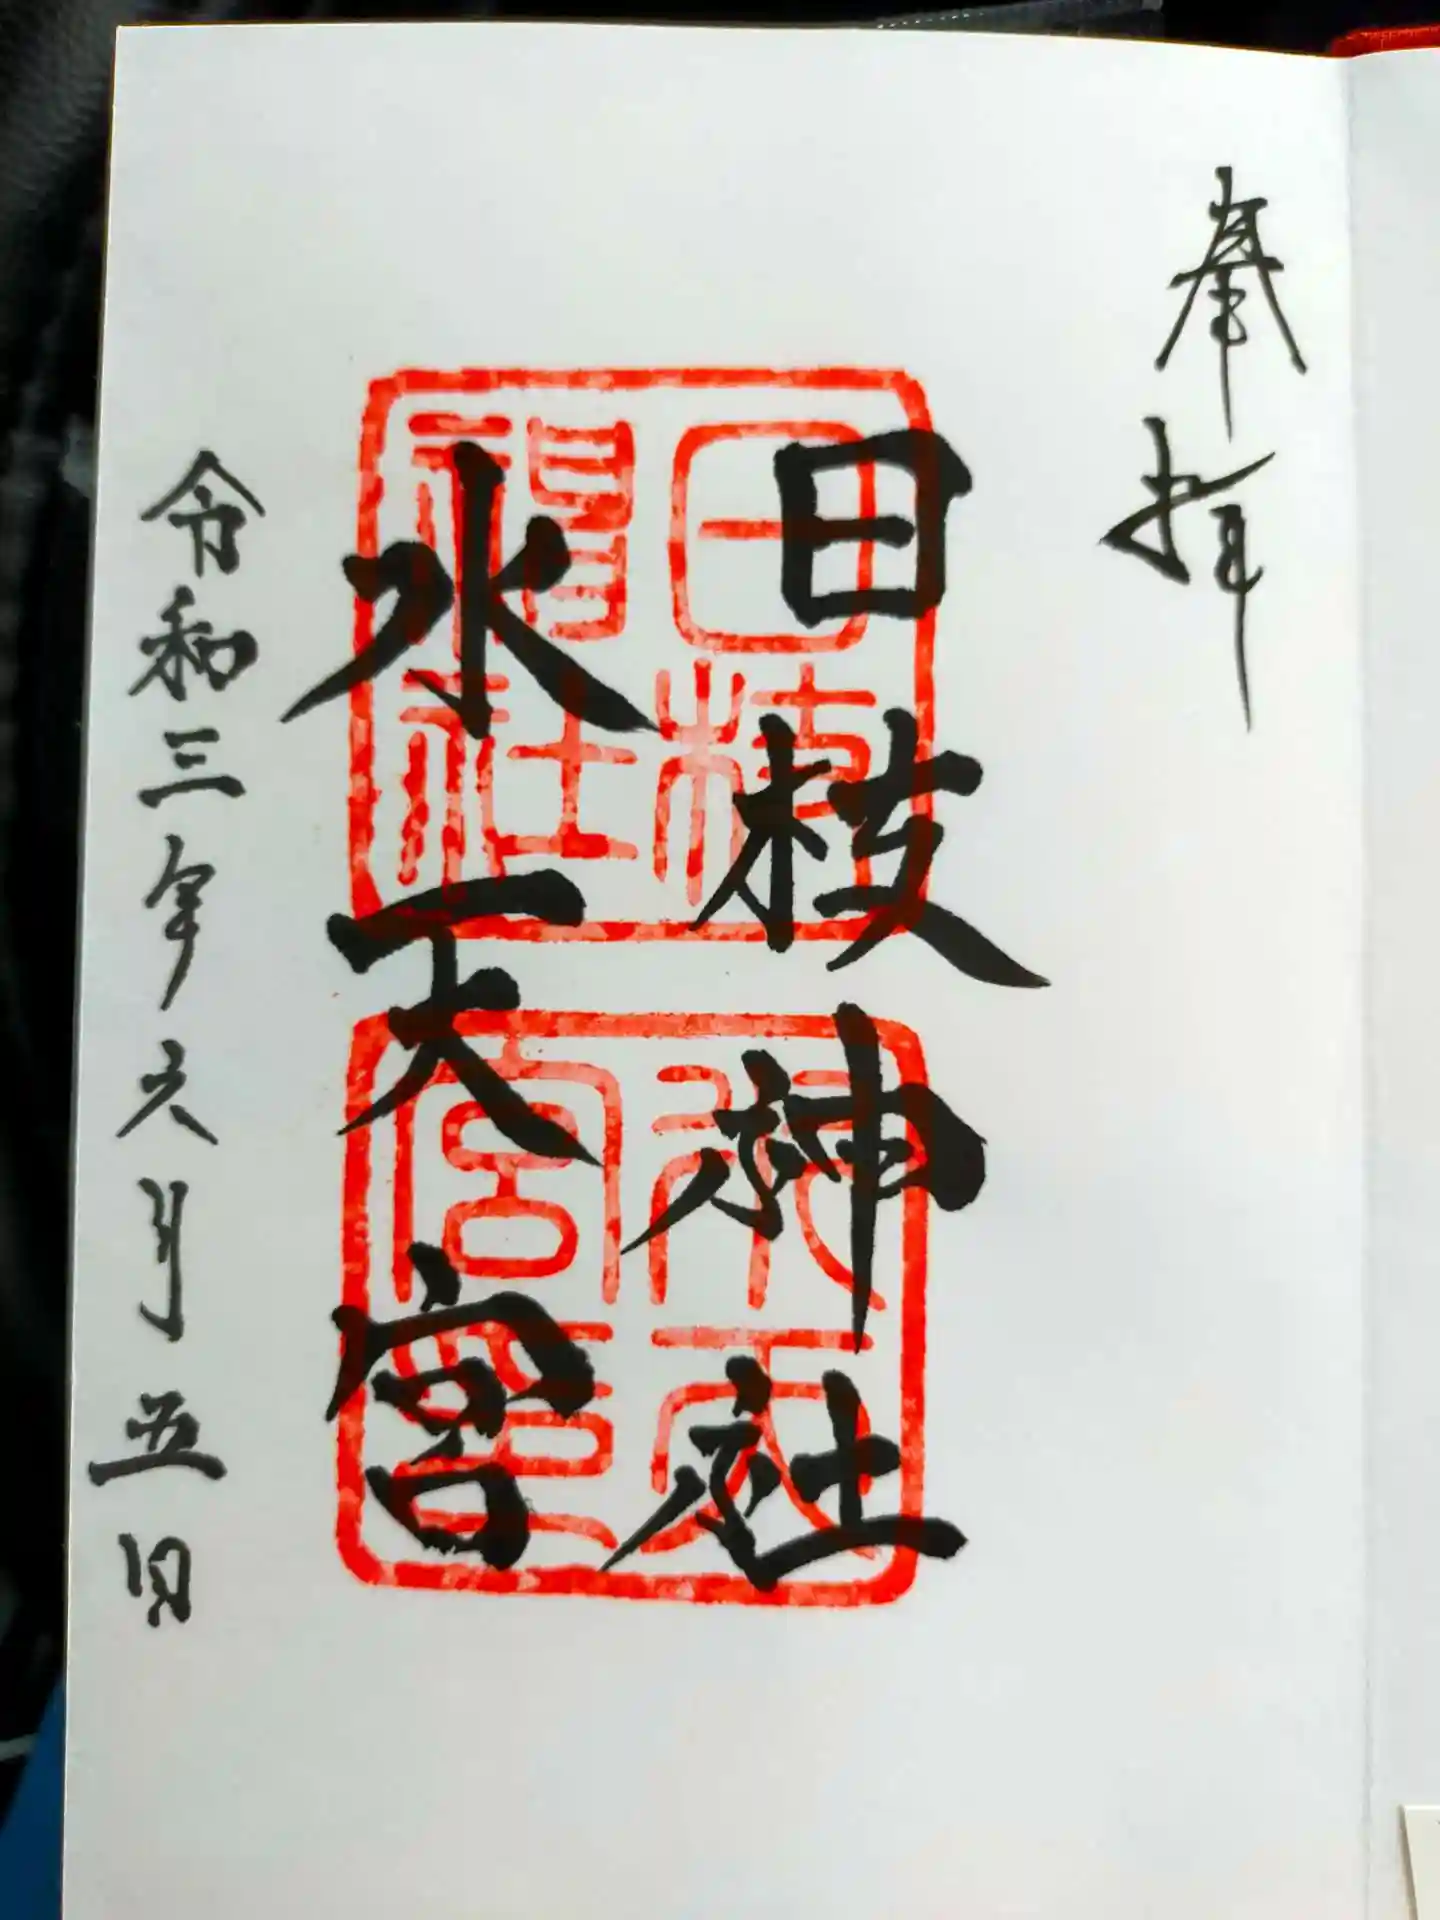 奉拝
日枝神社
水天宮
令和三年六月五日
日枝神社
水天宮印